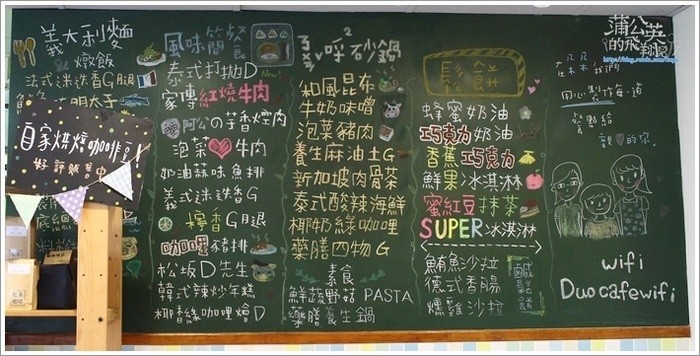 義大利麵
燉飯
法式迷迭香G腿
自家烘焙咖啡豆
好評販售中
風味簡餐
泰式打拋D
New!
家傳紅燒牛肉
阿公の芋香燜肉
泡菜牛肉
奶油蒜味魚排
義式迷迭香G
檸香G腿
咖哩豬排
松坂D先生
韓式辣炒年糕
椰香綠咖哩燴D
ㄎㄡ呼砂鍋
和風昆布
牛奶味噌
泡菜豬肉
養生麻油土G
新加坡肉骨茶
泰式酸辣海鮮
椰奶綠咖哩
藥膳四物G
素食
鮮蔬野菇 PASTA
藥膳養生鍋
鬆餅
蜂蜜奶油
巧克力奶油
香蕉巧克力
鮮果冰淇淋
蜜紅豆抹茶
SUPER冰淇淋
鮪魚沙拉
德式香腸
燻雞沙拉
鹹鬆餅
蒲公英
的飛翔
用心製作每一道
餐點給
親愛的你
wifi
Duocafewifi